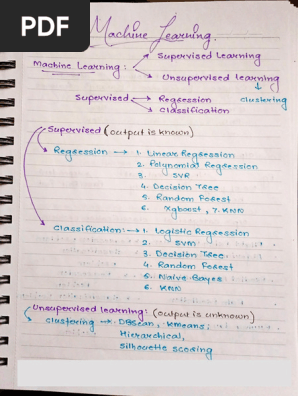 PDF
Machine Learning.
Machine Learning : Supervised Learning
Unsupervised learning
clustering
Supervised Regression
Classification
Supervised (output is known)
Regression 1. Linear Regression
2. Polynomial Regression
3. SVR
4. Decision Tree
5. Random Forest
6. Xgboost, 7. KNN
Classification: 1. Logistic Regression
2. SVM
3. Decision Tree
4. Random Forest
5. Naive Bayes
6. KNN
Unsupervised learning: (output is unknown)
clustering DBscan, Kmeans,
Hierarchical,
Silhouette scoring